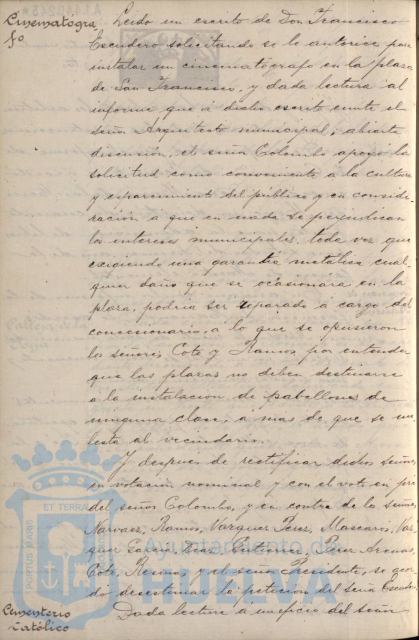 Cinematogra-
fo
Leido un escrito de Don Francisco
Escudero solicitando se le autorice para
instalar un cinematógrafo en la plaza
de San Francisco, y dada lectura al
informe que á dicho escrito emite el
Señor Arquitecto municipal; abierta
discusión, el señor Colombo apoyó la
solicitud como conveniente á la cultura
y esparcimiento del público y en conside-
ración á que en nada se perjudican
los intereses municipales, toda vez que
exigiendo una garantía metálica cual
quier daño que se ocasionára en la
plaza, podría ser reparado á cargo del
concesionario, a lo que se opusieron
los señores, Coto y Ramos por entender
que las plazas no deben destinarse
á la instalacion de pabellones de
ninguna clase, a mas de que se mo
lesta al vecindario.
Y despues de rectificar dichos señores
en votación nominal y con el voto en pro
del señor Colombo, y en contra de los señores
Narvaez, Ramos, Vazquez Perez, Mascarós, Vaz
quez Garcia, Diaz, Gutierrez, Perez Arenas
Coto, y el señor Presidente, se acor
dó desestimar la peticion del señor Escudero
Cementerio
Católico
Dada lectura a un oficio del señor
PORTUS MARIS
ET TERRAE
Ayuntamiento de
HUELVA